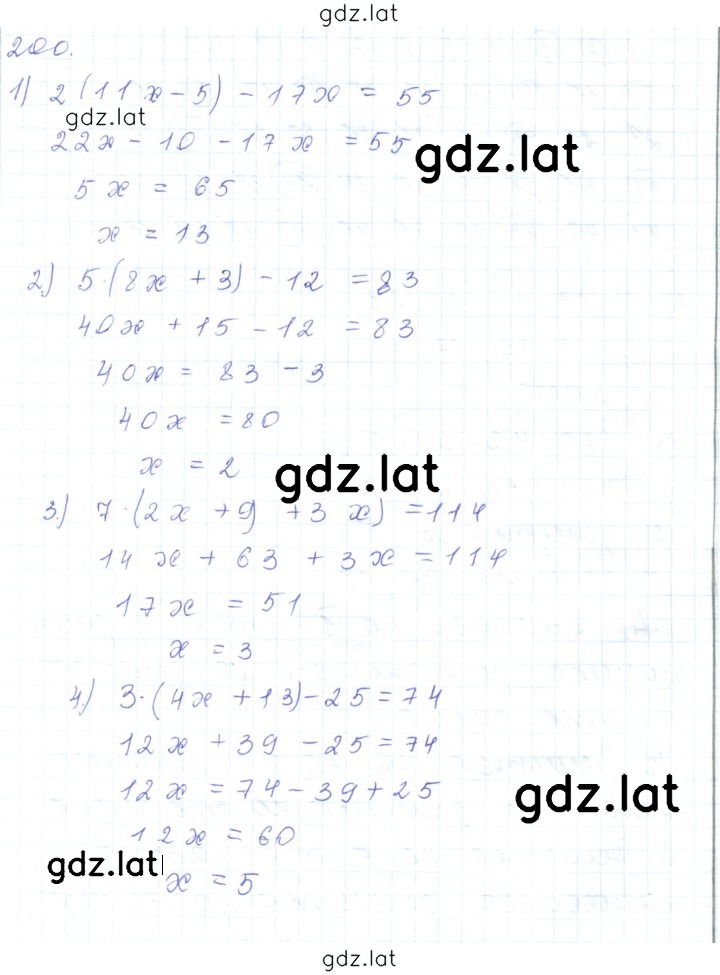 gdz.lat
200.
1) 2(11x - 5) - 17x = 55
gdz.lat
22x - 10 - 17x = 55
gdz.lat
5x = 65
x = 13
2) 5·(8x + 3) - 12 = 83
40x + 15 - 12 = 83
40x = 83 - 3
40x = 80
x = 2
gdz.lat
3) 7·(2x + 9) + 3x) = 114
14x + 63 + 3x = 114
17x = 51
x = 3
4) 3·(4x + 13) - 25 = 74
12x + 39 - 25 = 74
12x = 74 - 39 + 25
gdz.lat
12x = 60
gdz.lat
x = 5
gdz.lat